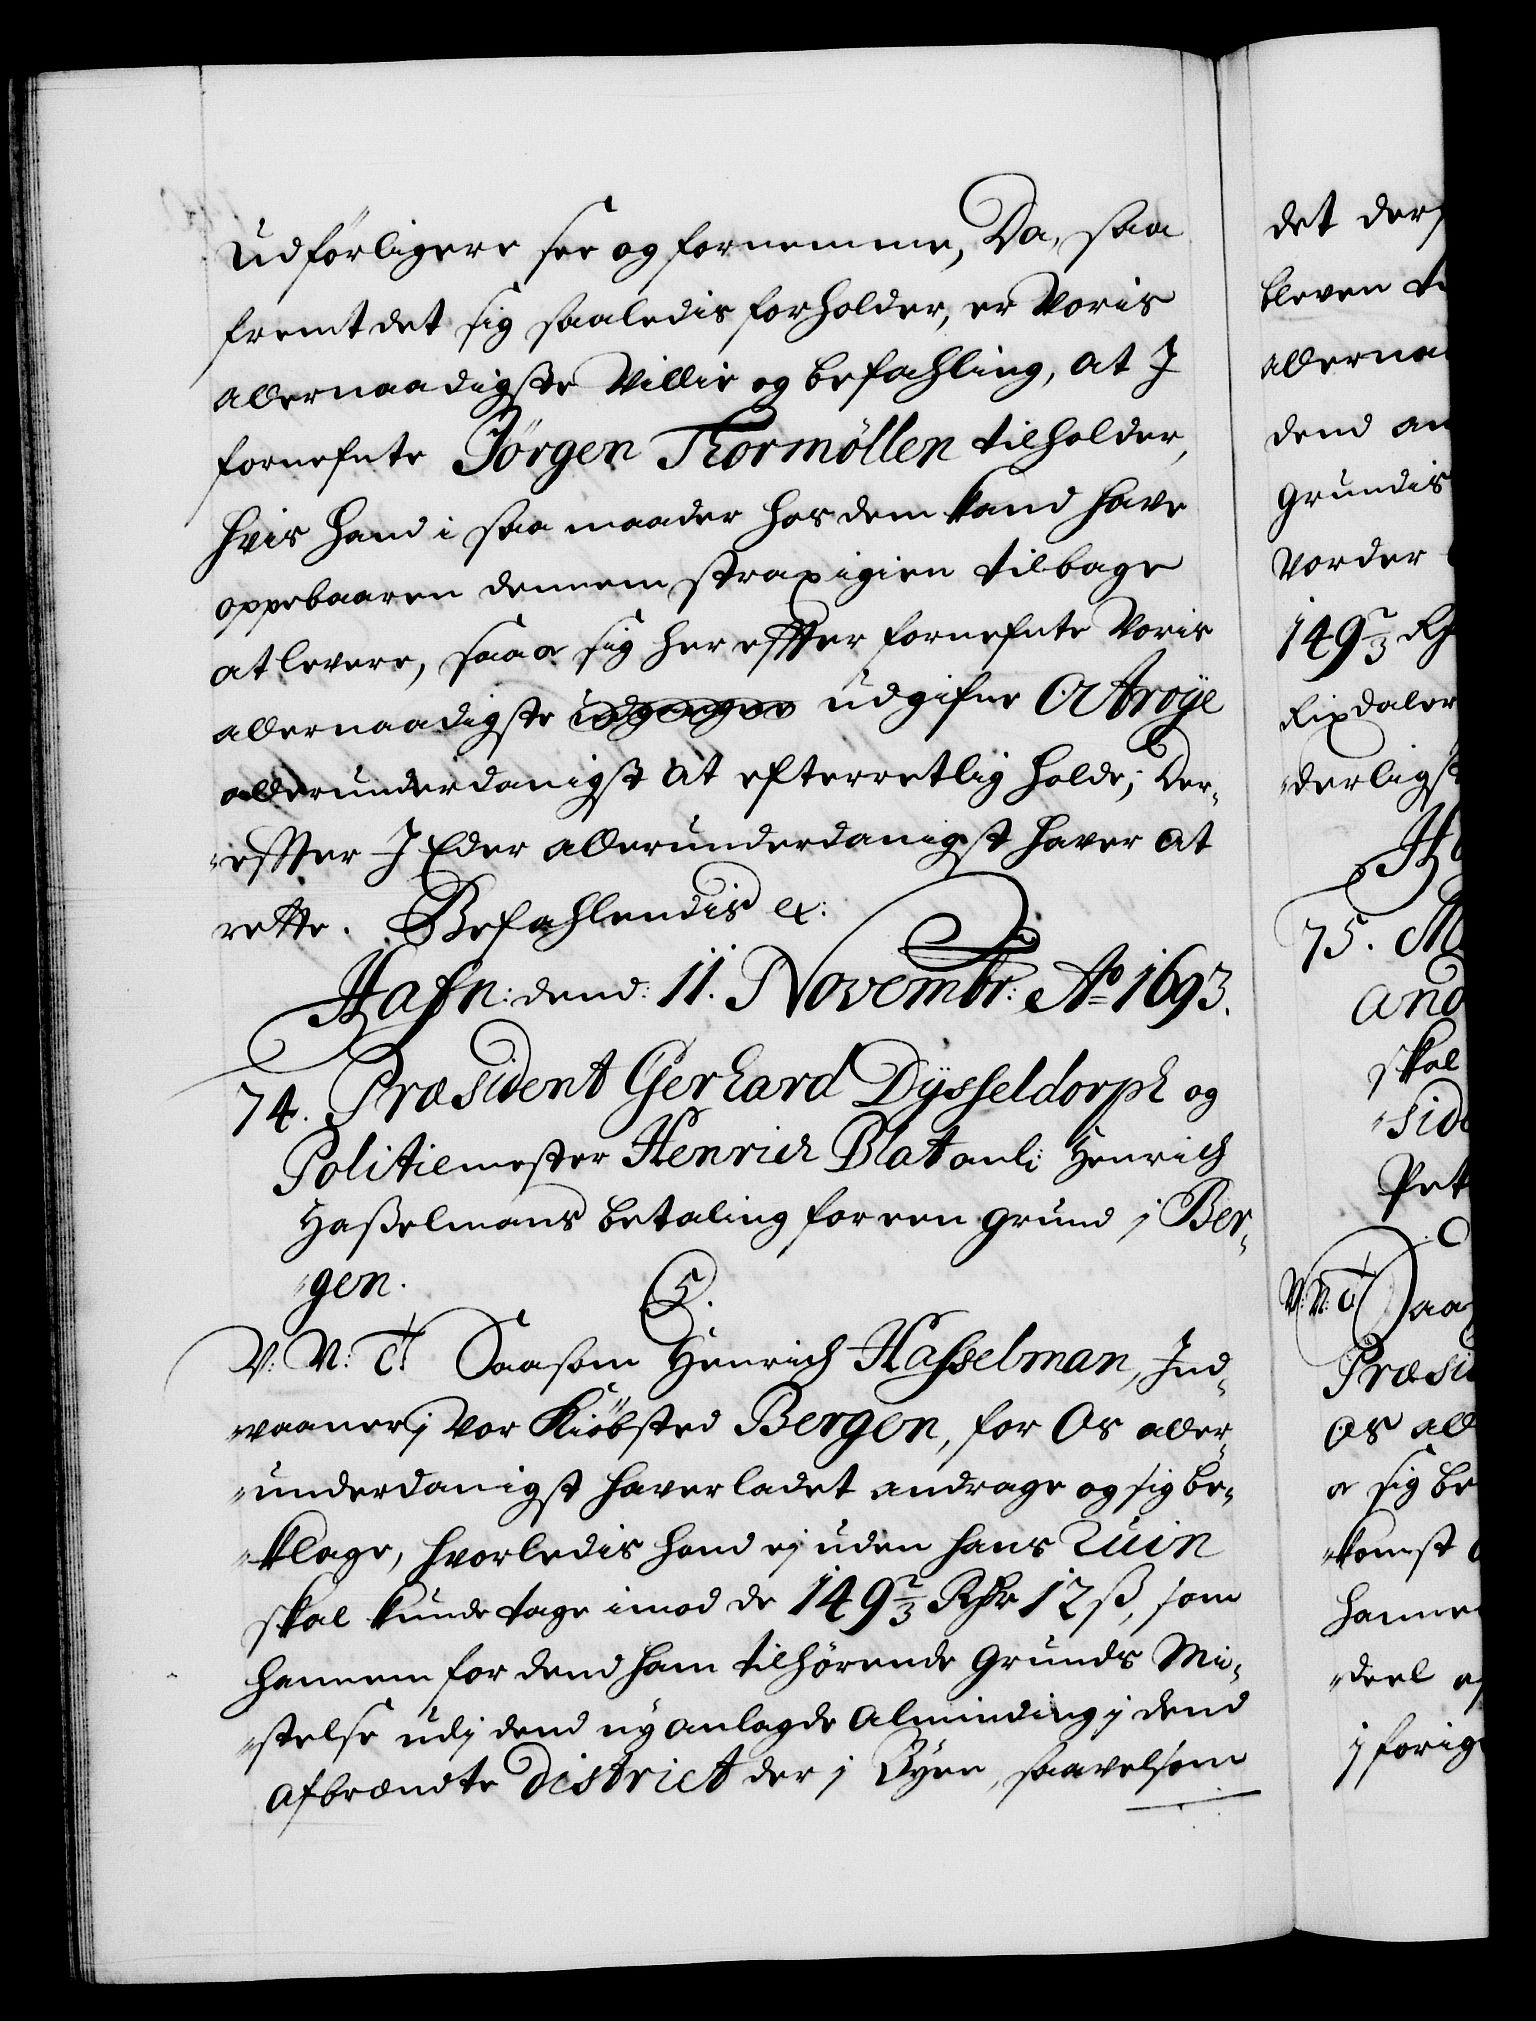 udførligere see og fornemme, Da, saa
fremt det sig saaledis forholder, er Voris
allernaadigste Villie og befahling, at I
fornefnte Jörgen Thormöllen tilholder,
hvis hand i saa maader hos dem kand have
oppebaaren dennem strax igien tilbage
at levere, saa og sig her effter fornefnte Voris
allernaadigste udgangne udgifne Octroye
allerunderdanigst at efterretlig holde; Der¬
effter I Eder allerunderdanigst haver at
rette. Befahlendis etc:
Hafn: dend: 11. Novembr: Ao 1693.
74. Præsident Gerhard Dysseldorph og
Politiemester Henrich Blat anl: Henrich
Hasselmans betaling for een grund i Ber¬
gen. C5.
V: N: C: Saasom Henrich Hasselman, Ind¬
vaaner i vor Kiöbsted Bergen, for Os aller¬
underdanigst haver ladet andrage og sig be¬
klage, hvorledis hand ej uden hans ruin
skal kunde tage imod de 149 2/3 Rdr 12 ß, som
hannem for dend ham tilhørende grunds Mi¬
stelse udj dend ny anlagde Alminding i dend
afbrændte District der i Byen, saavelsom
det ders
bleven
allerna
dend an
grundis
Vorder
149 2/3 R
Rixdaler
derligst
75. M
and
skal
side
Pet
C
V: N: C: Saa
Præsi
Os all
og sig be
komst
hannem
deel
i forig